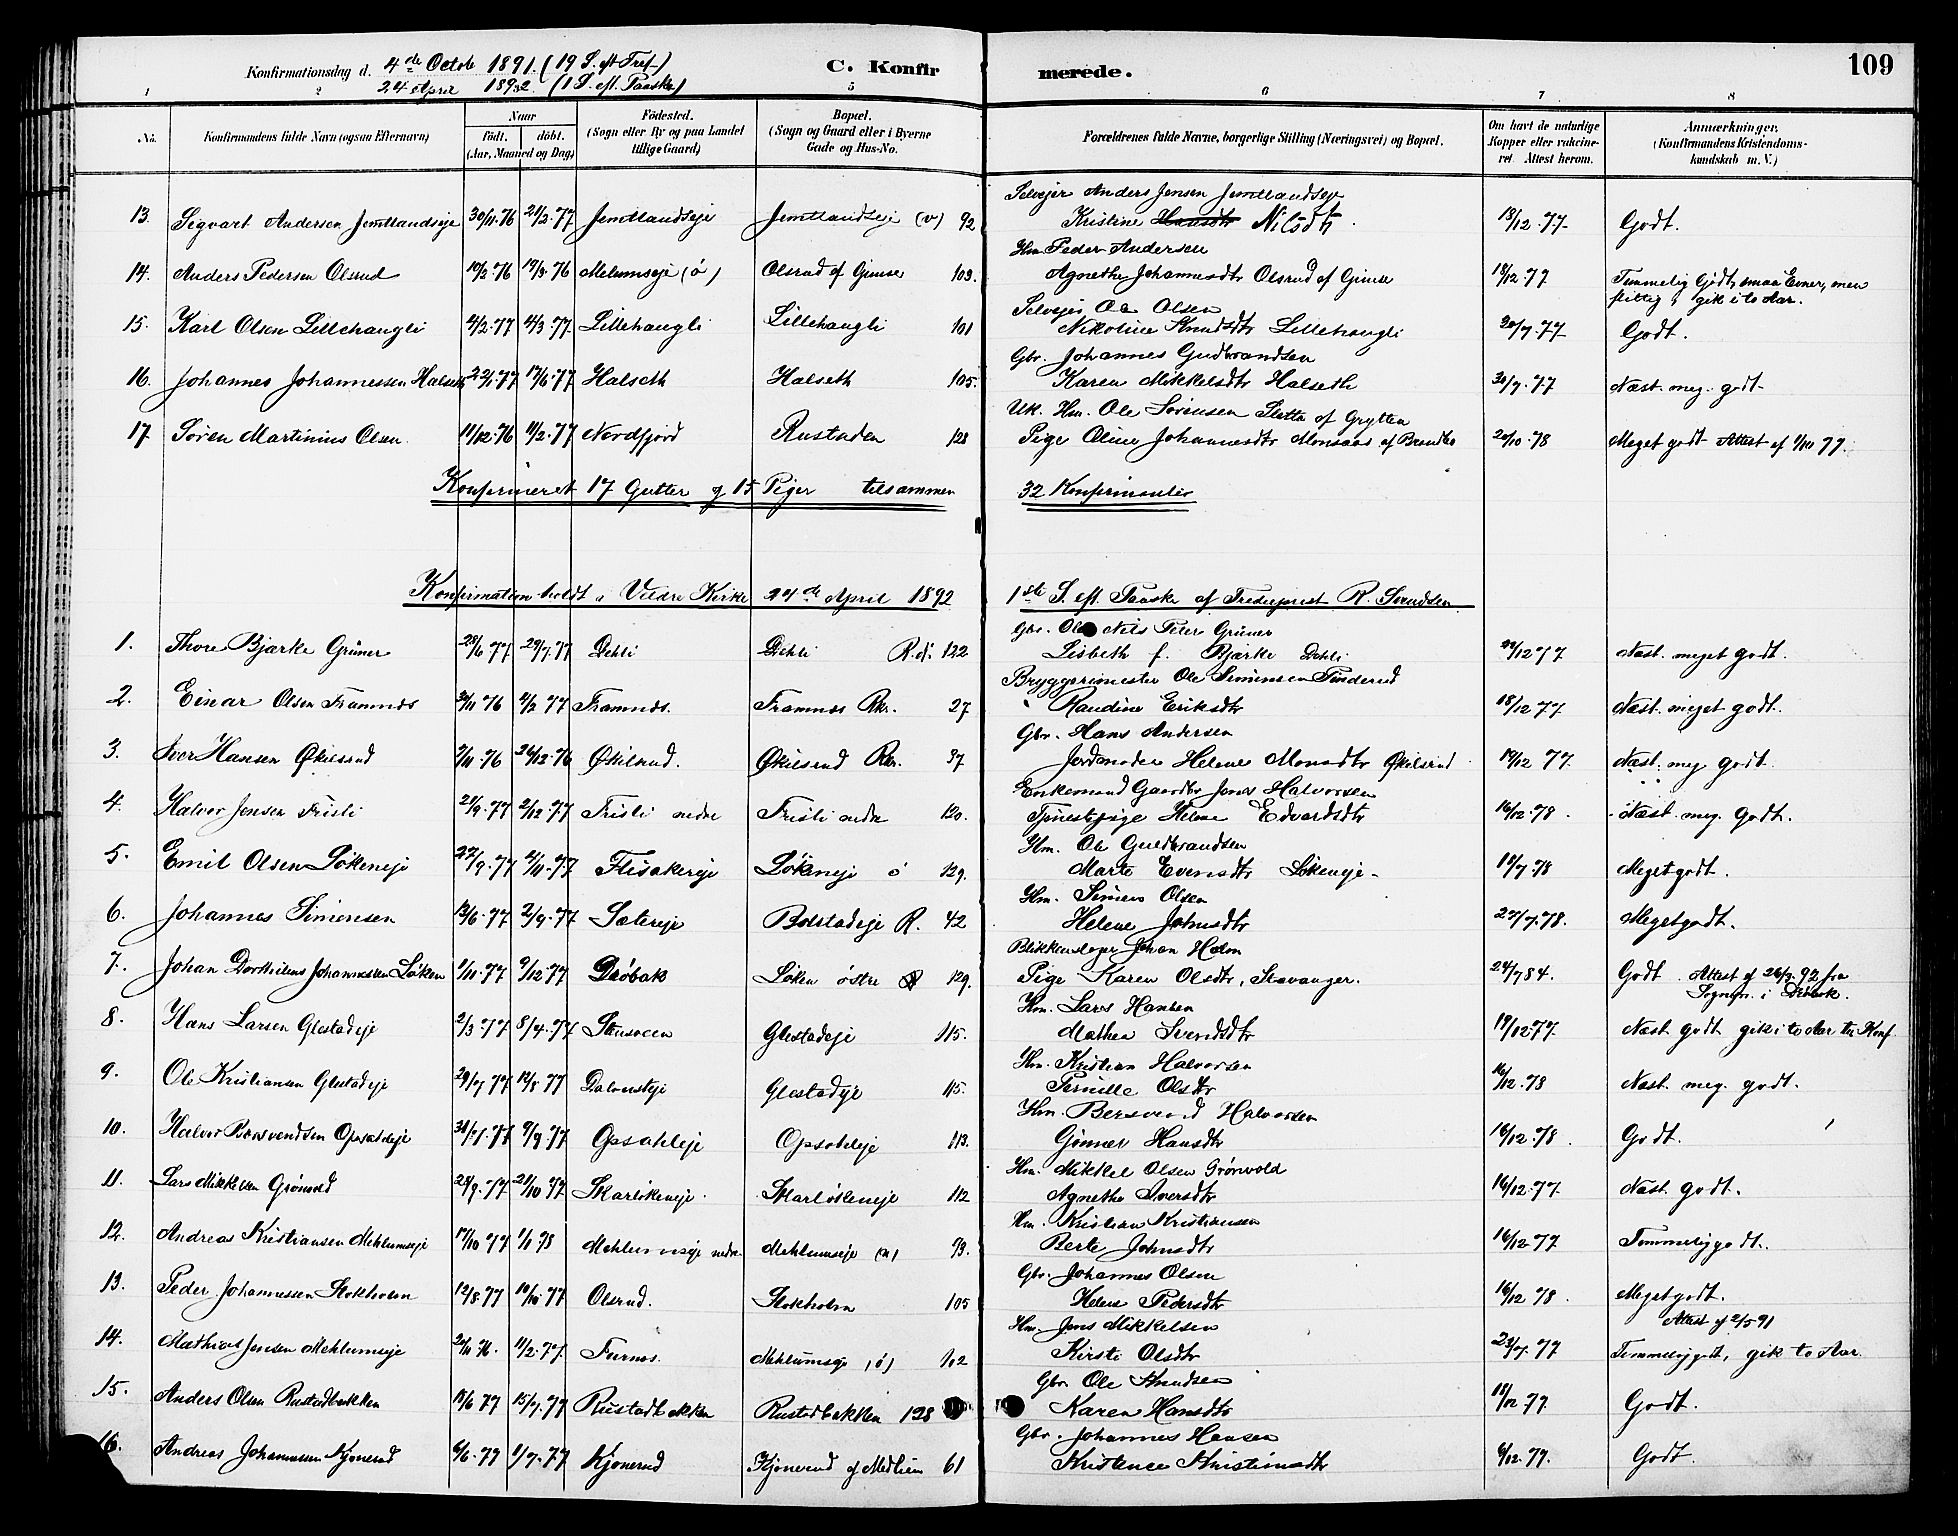 109
Konfirmationsdag d. 4de Octob 1891. (19 S. eft Tref.)
24 April 1892. (1 S. eft. Paaske)
C. Konfirmerede.
1 2 5 6 7 8
No. Konfirmandens fulde Navn (ogsaa Efternavn) Naar født. døbt. (Aar, Maaned og Dag) Fødested. (Sogn eller By og paa Landet tillige Gaard) Bopæl. (Sogn og Gaard eller i Byerne Gade og Hus-No. Forældrenes fulde Navne, borgerlige Stilling (Næringsvei) og Bopæl. Om havt de naturlige Kopper eller vakcineret. Attest herom. Anmærkninger. (Konfirmandens Kristendomskundskab m. V.)
Selvejer Anders Jensen Jemtlandseje
13. Sigvart Andersen Jemtlandseje 30/11.76 21/2.77 Jemtlandseje Jemtlandseje (v) 92 Kristine Hansdtr Nilsdtr. 18/12.77 Godt.
Hm Peder Andersen
14. Anders Pedersen Olsrud 10/2.76 19/3.76 Melumseje (ö) Olsrud af Gjinse 103. Agnethe Johannesdtr Olsrud af Gjinse 18/12.77 Temmelig Godt, smaa Evner, men
flittig, gik i to Aar.
Selvejer Ole Olsen
15. Karl Olsen Lillehaugli 4/2.77 4/3.77. Lillehaugli Lillehaugli 101 Nikoline Knudsdtr Lillehaugli 30/7.77 Godt.
Gbr. Johannes Gudbrandsen
16. Johannes Johannessen Halseth 22/1.77 17/6.77 Halseth Halseth 105. Karen Mikkelsdtr Halseth 30/7.77 Næst. meg. godt.
Uk. Hm. Ole Sørensen Sletta af Grytten
17. Søren Martinius Olsen 11/12.76 11/2.77 Nordfjord Rustaden 128 Pige Oline Johannesdtr Monsaas af Brandbo 20/10.78 Meget godt Attest af 1/10 77.
Konfirmeret 17 Gutter og 15 Piger tilsammen 32 Konfirmanter
Konfirmation holdt i Veldre Kirke 24de April 1892 1ste S. eft. Paaske af Sogneprest R. Svendsen
Gbr. Ole Nils Peter Grüner
1. Thore Bjarke Grüner 28/6 77 29/7.77 Dehli Dehli R.d. 122 Lisbeth f. Bjarke Dehli 21/12 77 Næst. meget godt.
Bryggerimester Ole Simensen Tinderud
2. Einar Olsen Framnes 30/11 76 4/2 77 Framnes. Framnes Rkr. 27 Randine Eriksdtr 18/12 77 Næst. meget godt.
Gbr. Hans Andersen
3. Iver Hansen Økilsrud 2/11.76 26/12.76 Økilsrud. Økilsrud Rkr. 37 Jordmoder Helene Monsdtr Økilsrud 19/12 77. Næst. meg godt.
Enkemand Gaardbr Jens Halvorsen
4. Halvor Jensen Frisli 21/9.77 2/12.77 Frisli nedre Frisli nedre 120. Tjenestepige Helene Edvardsdtr 16/12.78. Næst. meg. godt.
Hm. Ole Guldbrandsen
5. Emil Olsen Løkeneje 27/9.77 4/11.77 Flisakereje Løkeneje ö 129. Marte Evensdtr Løkeneje 18/7.78 Meget godt.
Hm. Simen Olsen
6. Johannes Simensen 13/6.77 2/9.77 Sætereje Bolstadeje R. 42 Helene Johnsdtr 27/7.78. Meget godt.
Blikkenslager Johan Holm
7. Johan Dorthilius Johannessen Løken 1/11.77 9/12.77 Drøbak Løken östre 129. Pige Karen Olsdtr, Stavanger. 24/7 84. Godt. Attest af 26/3.92 fra
Sognepr. i Drøbak.
Hm. Lars Hansen
8. Hans Larsen Glestadeje 2/3 77 8/4.77 Stensveen Glestadeje 115. Mathea Svendsdtr 19/12 77. Næst godt gik i to Aar til Konf
Hm. Kristian Halvorsen
9. Ole Kristiansen Glestadeje 29/7 77 12/8 77 Glestadeje 115. Pernille Olsdtr 16/12.78 Næst. meg. godt.
Hm. Bersvend Halvorsen
10. Halvor Bersvendsen Opsahleje 31/7.77 9/9.77 Opsahleje Opsahleje 113. Gønner Hansdtr 16/12.78. Godt.
Hm. Mikkel Olsen Grønvold
11. Lars Mikkelsen Grønvold 24/9.77 21/10 77 Skarløkeneje Skarløkeneje 112 Agnethe Iversdtr 16/12.77. Næst godt.
Hm. Kristian Kristiansen
12. Andreas Kristiansen Mehlumseje 17/10 77 1/1 78 Mehlumseje nedre Mehlumseje (n) 93. Berte Johnsdtr 16/12.77 Temmelig godt.
Gbr. Johannes Olsen
13. Peder Johannessen Stokholm 12/8.77 14/10.77 Olsrud. Stokholm 105 Helene Pedersdtr 16/12 78. Meget godt.
Attest af 2/5 91
Hm. Jens Mikkelsen
14. Mathias Jensen Mehlumseje 20/11 76. 11/2.77. Furnes. Mehlumseje (ö) 102 Kirsti Olsdtr 23/7.77 Temmelig godt, gik to Aar
Gbr Ole Knudsen
15. Anders Olsen Rustadbakken 18/6 77 15/7.77 Rustadbakken Rustadbakken 128 Karen Hansdtr 18/12 77. Godt.
Gbr. Johannes Hansen
16. Andreas Johannessen Kjønerud 6/6.77 1/7.77 Kjønerud Kjønerud af Medlien 61 Kristence Kristiansdtr 6/12.77. Godt.